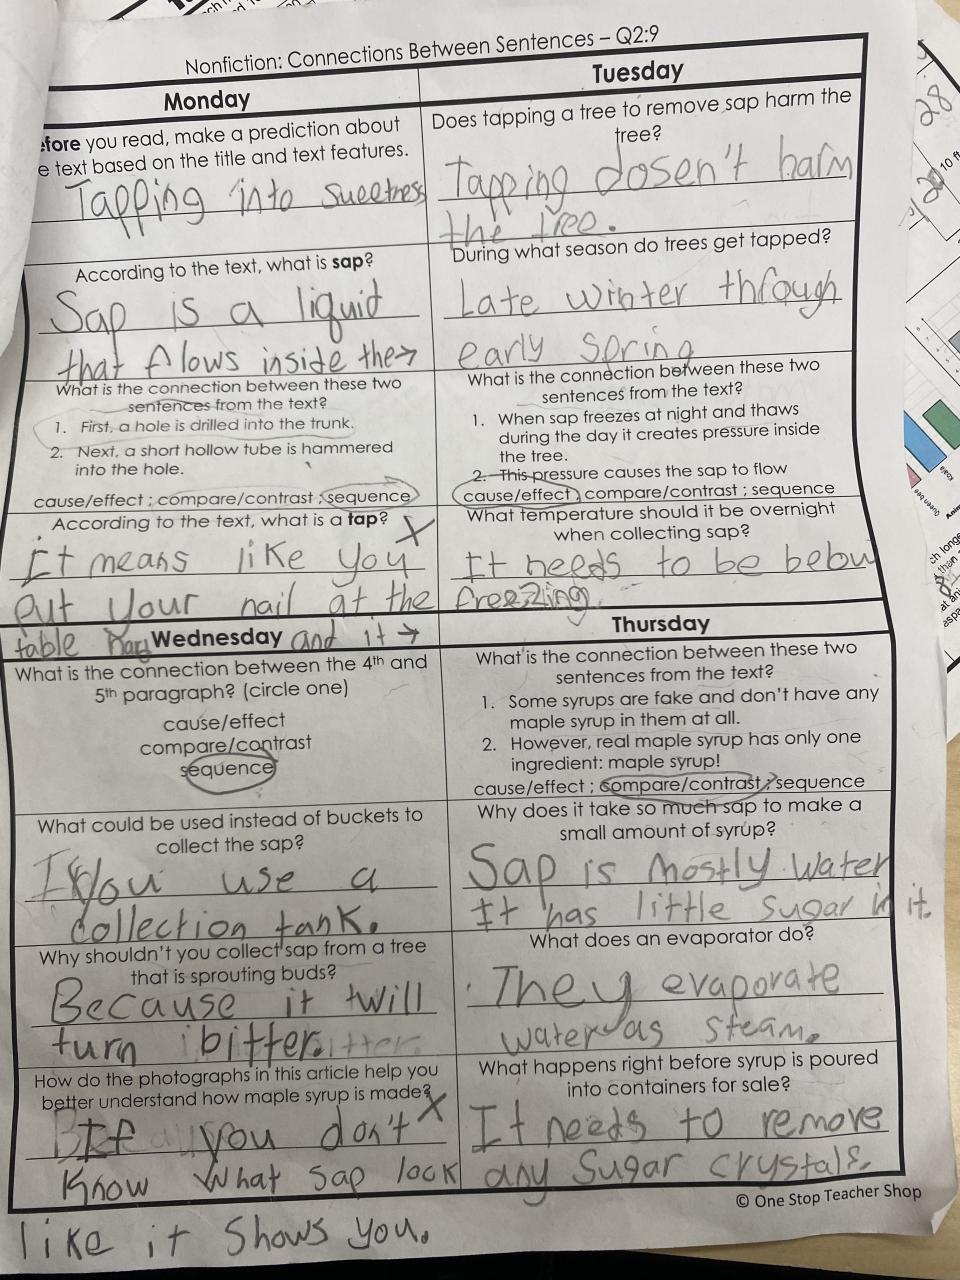 Nonfiction: Connections Between Sentences – Q2:9
Monday
efore you read, make a prediction about
e text based on the title and text features.
Tapping into sweetness
According to the text, what is sap?
Sap is a liquid
that flows inside the →
What is the connection between these two
sentences from the text?
1. First, a hole is drilled into the trunk.
2. Next, a short hollow tube is hammered
into the hole.
cause/effect ; compare/contrast ; sequence
According to the text, what is a tap?
X
It means like you
put your nail at the
table and it →
Tuesday
Does tapping a tree to remove sap harm the
tree?
Tapping dosen't harm
the tree.
During what season do trees get tapped?
Late winter through
early spring
What is the connection between these two
sentences from the text?
1. When sap freezes at night and thaws
during the day it creates pressure inside
the tree.
2. This pressure causes the sap to flow
cause/effect ; compare/contrast ; sequence
What temperature should it be overnight
when collecting sap?
It needs to be below
freezing.
Wednesday
What is the connection between the 4th and
5th paragraph? (circle one)
cause/effect
compare/contrast
sequence
What could be used instead of buckets to
collect the sap?
You use a
collection tank.
Why shouldn't you collect sap from a tree
that is sprouting buds?
Because it will
turn bitter.
How do the photographs in this article help you
better understand how maple syrup is made?
X
If you don't
know what sap lock
like it shows you.
Thursday
What is the connection between these two
sentences from the text?
1. Some syrups are fake and don't have any
maple syrup in them at all.
2. However, real maple syrup has only one
ingredient: maple syrup!
cause/effect ; compare/contrast ; sequence
Why does it take so much sap to make a
small amount of syrup?
Sap is mostly water
It has little sugar in it.
What does an evaporator do?
They evaporate
water as steam.
What happens right before syrup is poured
into containers for sale?
It needs to remove
any sugar crystals.
© One Stop Teacher Shop
28
10 ft
ch longe
than
at an
espa